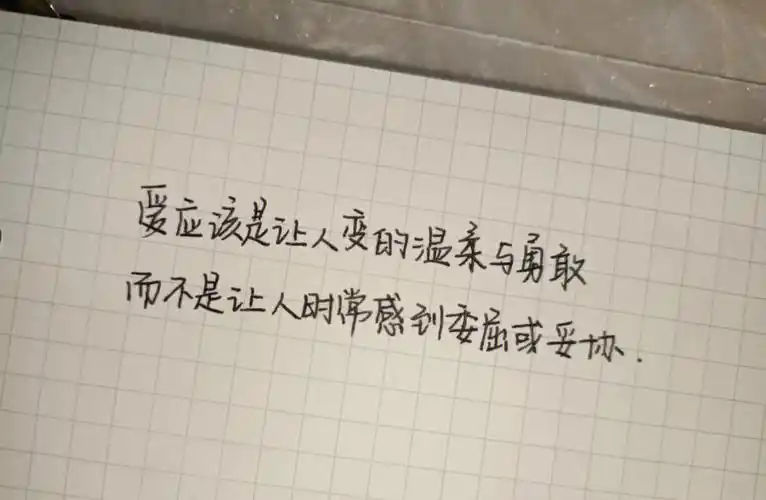 爱应该是让人变的温柔与勇敢
而不是让人时常感到委屈或妥协.